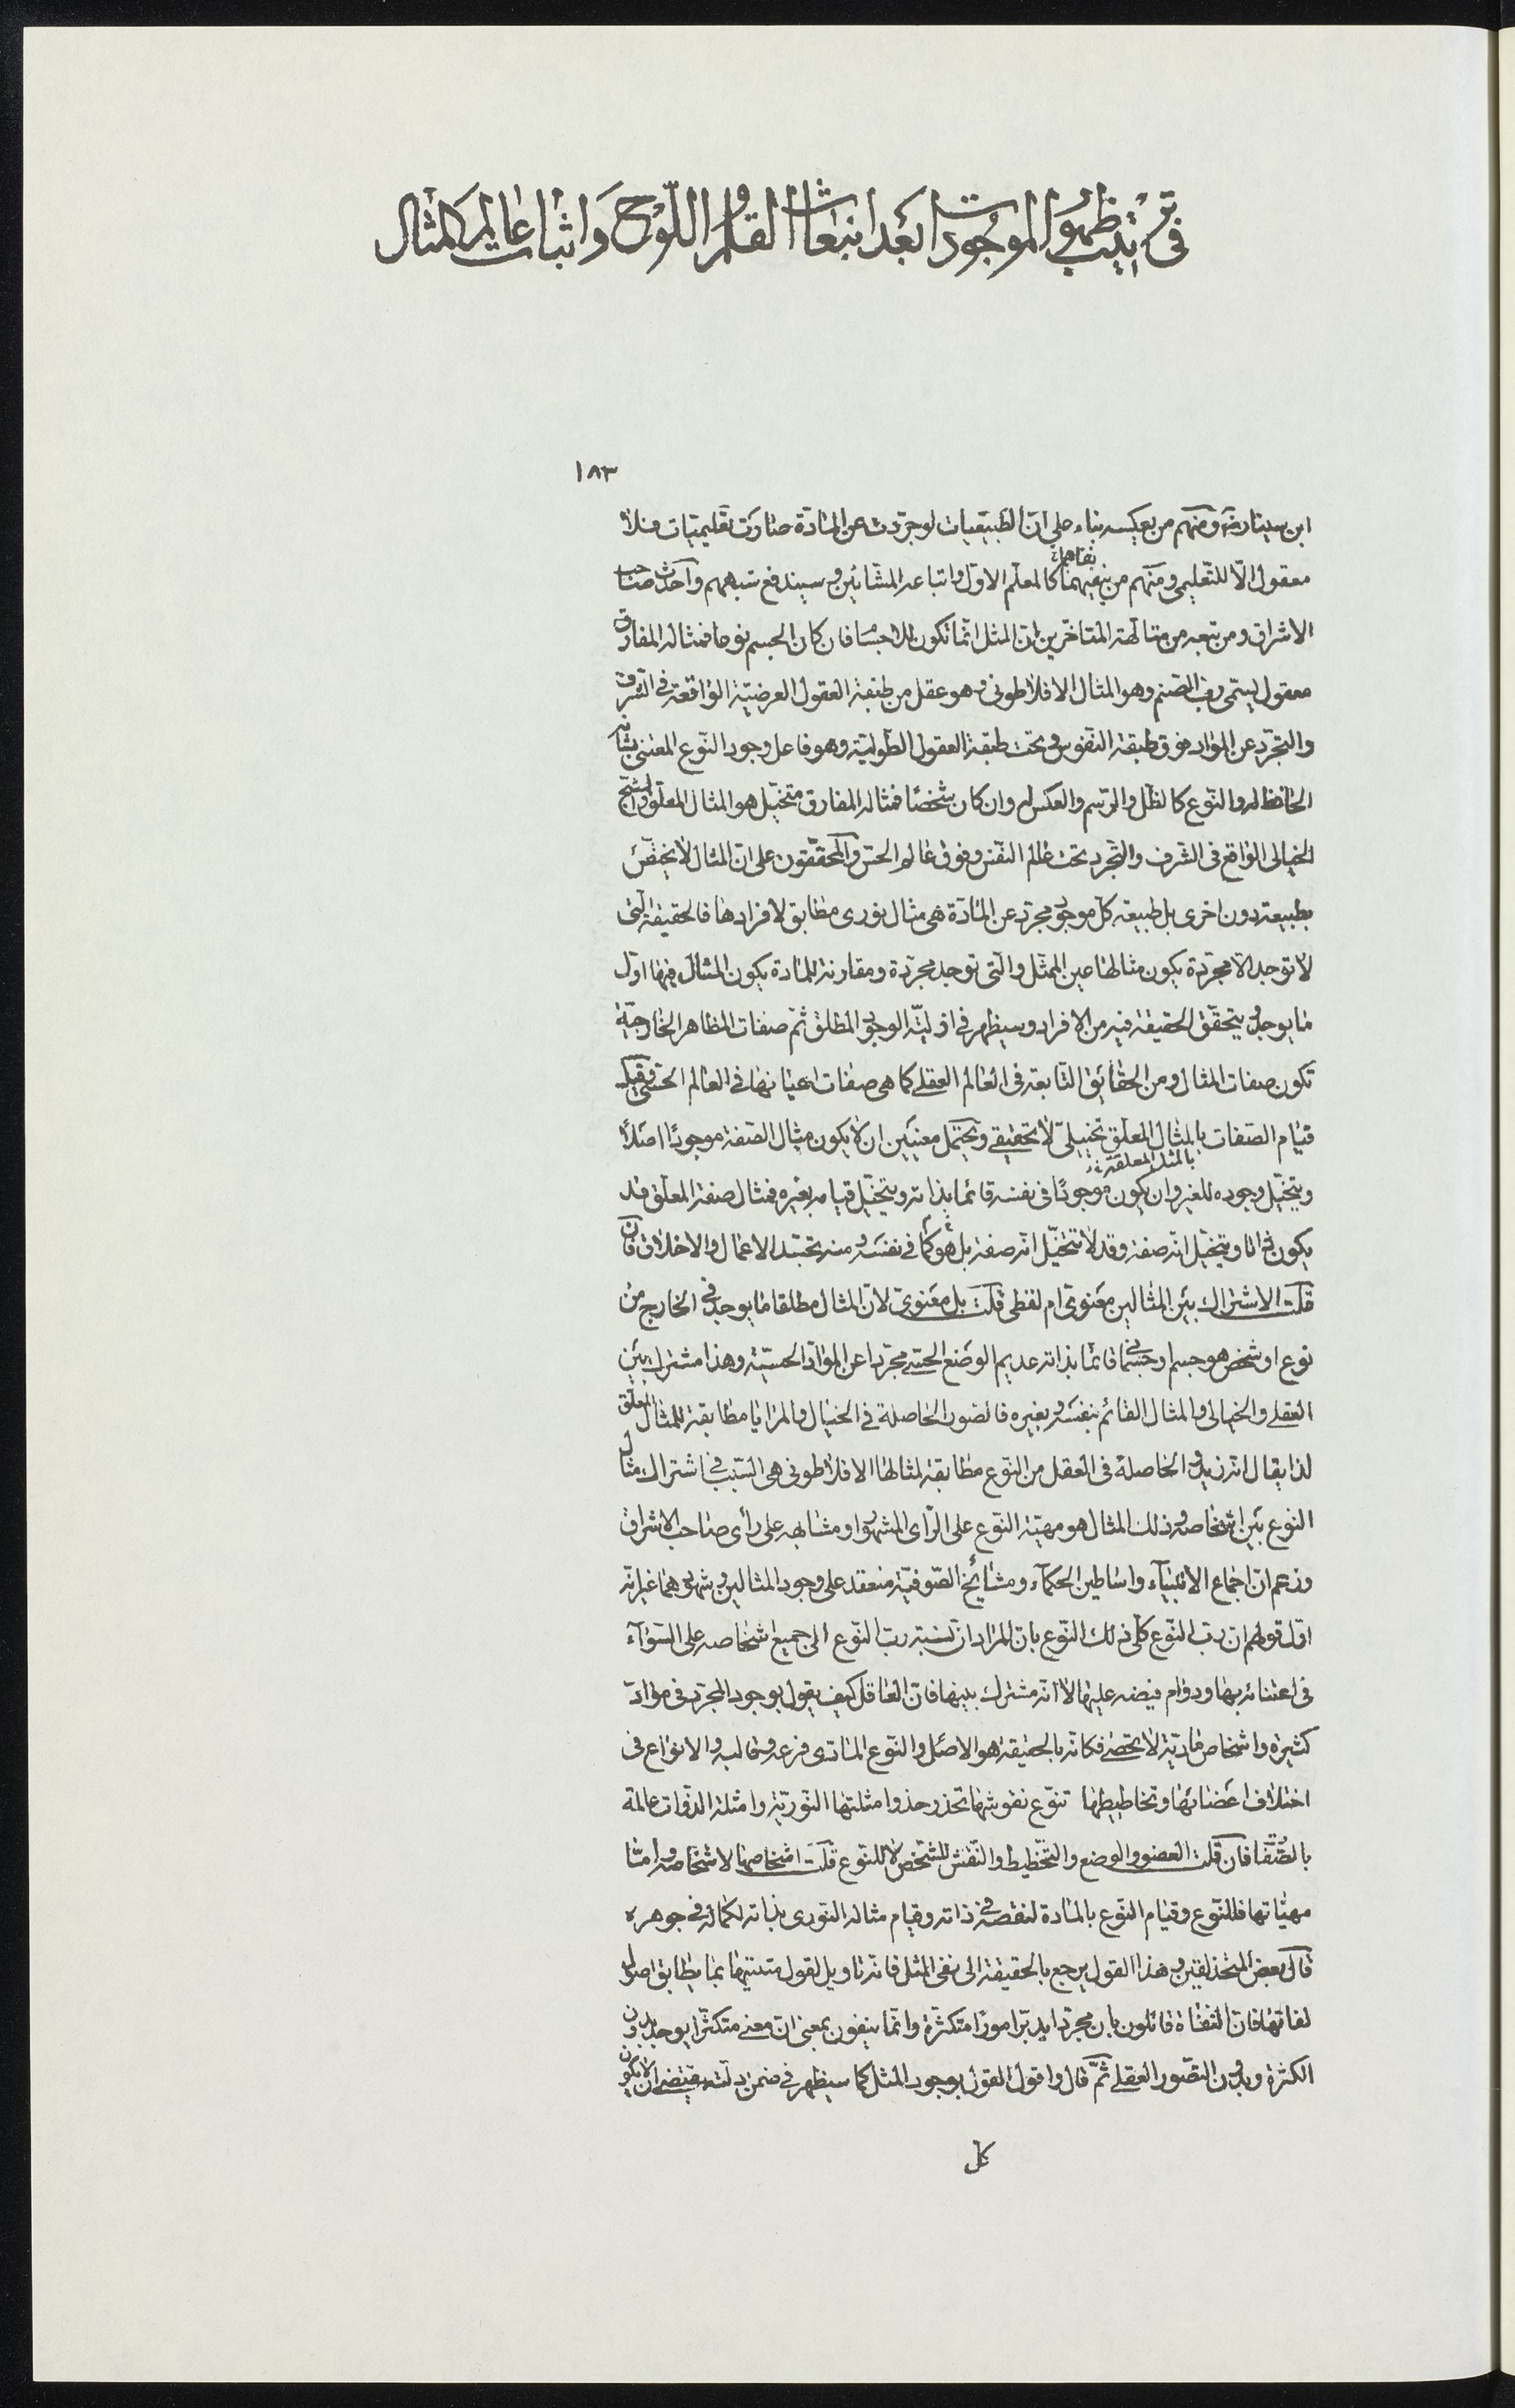 في ترتيب ظهور الموجودات بعد انبعاث القلم واللوح واثبات عالم المثال
١٨٣
ابن سينا ره ومنهم من يعكسه بناء على ان الطبيعيات لو جردت عن المادة صارت تعليميات فلا
معقول الا للتعليمي ومنهم من ينفيهما كالمعلم الاول واتباعه المشائين وسيندفع شبههم واحدث صاحب
الاشراق ومن تبعه من متالهة المتاخرين ان المثل انما تكون للاجسام فان كان الجسم نوعا فمثاله المفارق
معقول يسمى رب الصنم وهو المثال الافلاطوني وهو عقل من طبقة العقول العرضية الواقعة في الشرف
والتجرد عن المواد فوق طبقة النفوس وتحت طبقة العقول الطولية وهو فاعل وجود النوع المعتني بشانه
الحافظ له والنوع كالظل والرسم والعكس له وان كان شخصا فمثاله المفارق متخيل هو المثال المعلق والشبح
الخيالي الواقع في الشرف والتجرد تحت عالم النفس وفوق عالم الحس والمحققون على ان المثال لا يختص
بطبيعة دون اخرى بل طبيعة كل موجود مجرد عن المادة هي مثال نوري مطابق لافرادها فالحقيقة التي
لا توجد الا مجردة يكون مثالها عين الممثل والتي توجد مجردة ومقارنة للمادة يكون المثال فيها اول
ما يوجد ويتحقق الحقيقة فيه من الافراد وسيظهر في اولية الوجود المطلق ثم صفات المظاهر الخارجية
تكون صفات المثال ومن الحقائق التابعة في العالم العقلي كما هي صفات اعيانها في العالم الحسي وقيل
قيام الصفات بالمثال المعلق تخييلي لا تحقيقي ويحتمل معنيين ان لا يكون مثال الصفة موجودا اصلا
بالمثل المعلقة
ويتخيل وجوده للغير وان يكون موجودا في نفسه قائما بذاته ويتخيل قيامه بغيره فمثال صفة المعلق قد
يكون ذاتا ويتخيل انه صفة وقد لا يتخيل انه صفة بل هو كما في نفسه ومنه تجسد الاعمال والاخلاق فان
قلت الاشتراك بين المثالين معنوي ام لفظي قلت بل معنوي لان المثال مطلقا ما يوجد في الخارج من
نوع او شخص هو جسم او جسماني قائما بذاته عديم الوضع الحسي مجردا عن المواد الحسية وهذا مشترك بين
العقلي والخيالي والمثال القائم بنفسه وبغيره فالصور الحاصلة في الخيال والمرايا مطابقة للمثال المعلق
لذا يقال انه زيد والحاصلة في العقل من النوع مطابقة لمثالها الافلاطوني هي السبب في اشتراك مثال
النوع بين اشخاصه وذلك المثال هو مهية النوع على الراى المشهور او مشابهه على رأى صاحب الاشراق
وزعم ان اجماع الانبياء واساطين الحكماء ومشايخ الصوفية منعقد على وجود المثالين وشهودهما غير انه
اول قولهم ان رب النوع كلي ذلك النوع بان المراد ان نسبة رب النوع الى جميع اشخاصه على السوآء
في اعتنائه بها ودوام فيضه عليها لا انه مشترك بينها فان العاقل كيف يقول بوجود المجرد في مواد
كثيرة واشخاص مادية لا تحصى فكانه بالحقيقة هو الاصل والنوع المادي فرعه وقالبه والانواع في
اختلاف اعضائها وتخاطيطها تنوع نقوشها تحذو حذو امثلتها النورية وامثلة الذوات عالمة
بالصفات فان قلت العضو والوضع والتخطيط والنقش للشخص لا للنوع قلت اشخاصها لاشخاصه واما
مهياتها فللنوع وقيام النوع بالمادة لنقصه في ذاته وقيام مثاله النوري بذاته لكماله في جوهره
قال بعض المتحذلقين وهذا القول يرجع بالحقيقة الى نفي المثل فانه تاويل لقول مثبتيها بما يطابق اصول
نفاتها فان النفاة قائلون بان مجردا يدبر امورا متكثرة وانما ينفون بمعنى ان معنى متكثرا يوجد بدون
الكثرة وبدون التصور العقلي ثم قال واقول القول بوجود المثل كما سيظهر في ضمن ادلته يقتضي ان لا يكون
كل